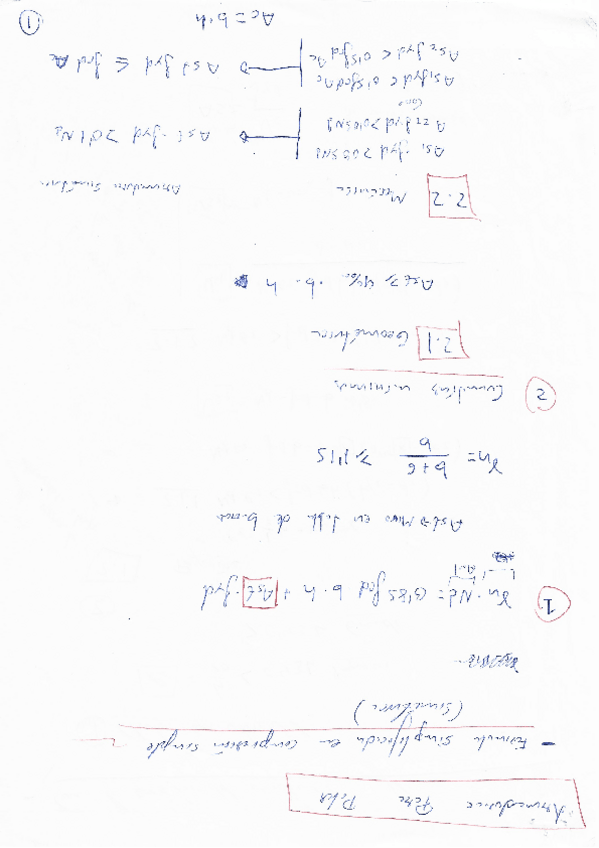 Armadura Para Pilar
- Fórmula simplificada en compresión simple
(simétrica)
1 γn · Nd = 0'85 fcd b · h + Ast · fyd
Ast → Mirar en tabla de barras
γn = b+6 / b ≥ 1'15
2 Cuantías mínimas
2.1 Geométrica
Ast ≥ 4‰ · b · h
2.2 Mecánica Armadura simétrica
As1 · fyd > 0'05Nd
As2 fyd > 0'05Nd → Ast · fyd > 0'1 Nd
As1 fyd < 0'5 fcd Ac
As2 fyd < 0'5 fcd Ac → Ast fyd ≤ fcd Ac
Ac = b · h
1